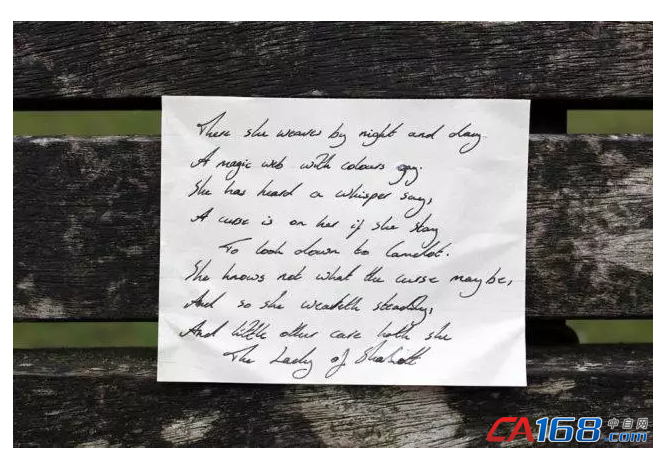 There she weaves by night and day
A magic web with colours gay.
She has heard a whisper say,
A curse is on her if she stay
To look down to Camelot.
She knows not what the curse may be,
And so she weaveth steadily,
And little other care hath she
The Lady of Shalott
CA168 中自网
.com